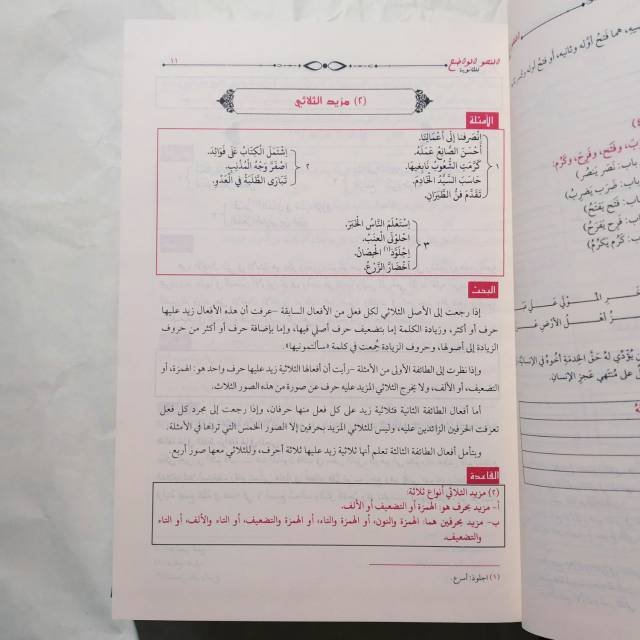 النحو الواضح
للثانوية
١١
(٢) مزيد الثلاثي
الأمثلة
١
انْصَرفنا إلى أَعْمَالِنَا.
أَحْسَنَ الصَّانِعُ عَمَلَهُ.
كَرَّمَتِ الشُّعُوبُ نَابِغِيهَا.
حَاسَبَ السَّيِّدُ الْخَادِمَ.
تَقَدَّمَ فَنُّ الطَّيَرَانِ.
٢
اِشْتَمَلَ الْكِتَابُ عَلَى فَوَائِدَ.
اصْفَرَّ وَجْهُ الْمُذْنِبِ.
تَبَارَى الطَّلَبَةُ فِي الْعَدْوِ.
٣
اِسْتَعْلَمَ النَّاسُ الْخَبَرَ.
اِحْلَوْلَى الْعِنَبُ.
اِجْلَوَّذَ(١) الْحِصَانُ.
اخْضَارَّ الزَّرْعُ.
البحث
إذا رجعت إلى الأصل الثلاثي لكل فعل من الأفعال السابقة -عرفت أن هذه الأفعال زيد عليها
حرف أو أكثر، وزيادة الكلمة إما بتضعيف حرف أصلي فيها، وإما بإضافة حرف أو أكثر من حروف
الزيادة إلى أصولها، وحروف الزيادة جُمعت في كلمة «سألتمونيها».
وإذا نظرت إلى الطائفة الأولى من الأمثلة -رأيت أن أفعالها الثلاثية زيد عليها حرف واحد هو: الهمزة، أو
التضعيف، أو الألف، ولا يخرج الثلاثي المزيد عليه حرف عن صورة من هذه الصور الثلاث.
أما أفعال الطائفة الثانية فثلاثية زيد على كل فعل منها حرفان، وإذا رجعت إلى مجرد كل فعل
تعرفت الحرفين الزائدين عليه، وليس للثلاثي المزيد بحرفين إلا الصور الخمس التي تراها في الأمثلة.
وبتأمل أفعال الطائفة الثالثة تعلم أنها ثلاثية زيد عليها ثلاثة أحرف، وللثلاثي معها صور أربع.
القاعدة
(٢) مزيد الثلاثي أنواع ثلاثة:
أ- مزيد بحرف هو: الهمزة أو التضعيف أو الألف.
ب- مزيد بحرفين هما: الهمزة والنون، أو الهمزة والتاء، أو الهمزة والتضعيف، أو التاء والألف، أو التاء
والتضعيف.
(١) اجلوذ: أسرع.
هما فَتْحُ أوَّله وثانيه، أو فتحُ أوله
وفَتَح، وفَرِحَ، وكَرُم:
باب: نَصَر يَنْصُر)
باب: ضَرَب يَضرِبُ)
باب: فَتَح يَفتَحُ)
باب: فَرِح يَفرَحُ)
باب: كَرُم يَكرُمُ)